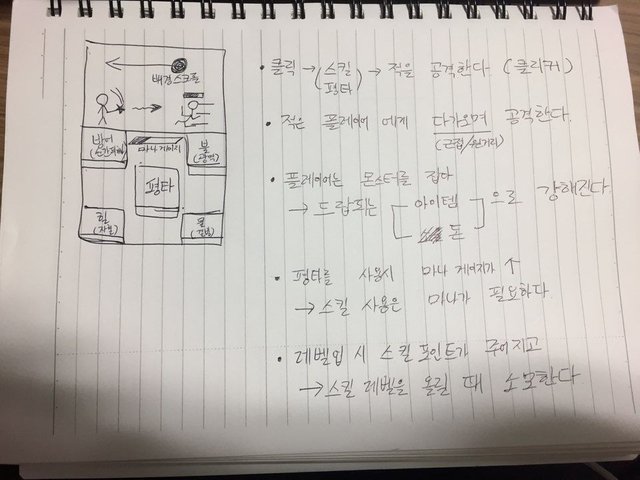 배경스크롤
방어
마나 게이지
불
(광역)
평타
힐
(자힐)
독
• 클릭 → (스킬 평타) → 적을 공격한다 (클리커)
• 적은 플레이어 에게 다가오며 공격한다.
(근접/원거리)
• 플레이어는 몬스터를 잡아
→ 드랍되는 [아이템 돈] 으로 강해진다
• 평타를 사용시 마나 게이지가 ↑
→ 스킬 사용은 마나가 필요하다
• 레벨업 시 스킬 포인트가 주어지고
→ 스킬 레벨을 올릴 때 소모한다